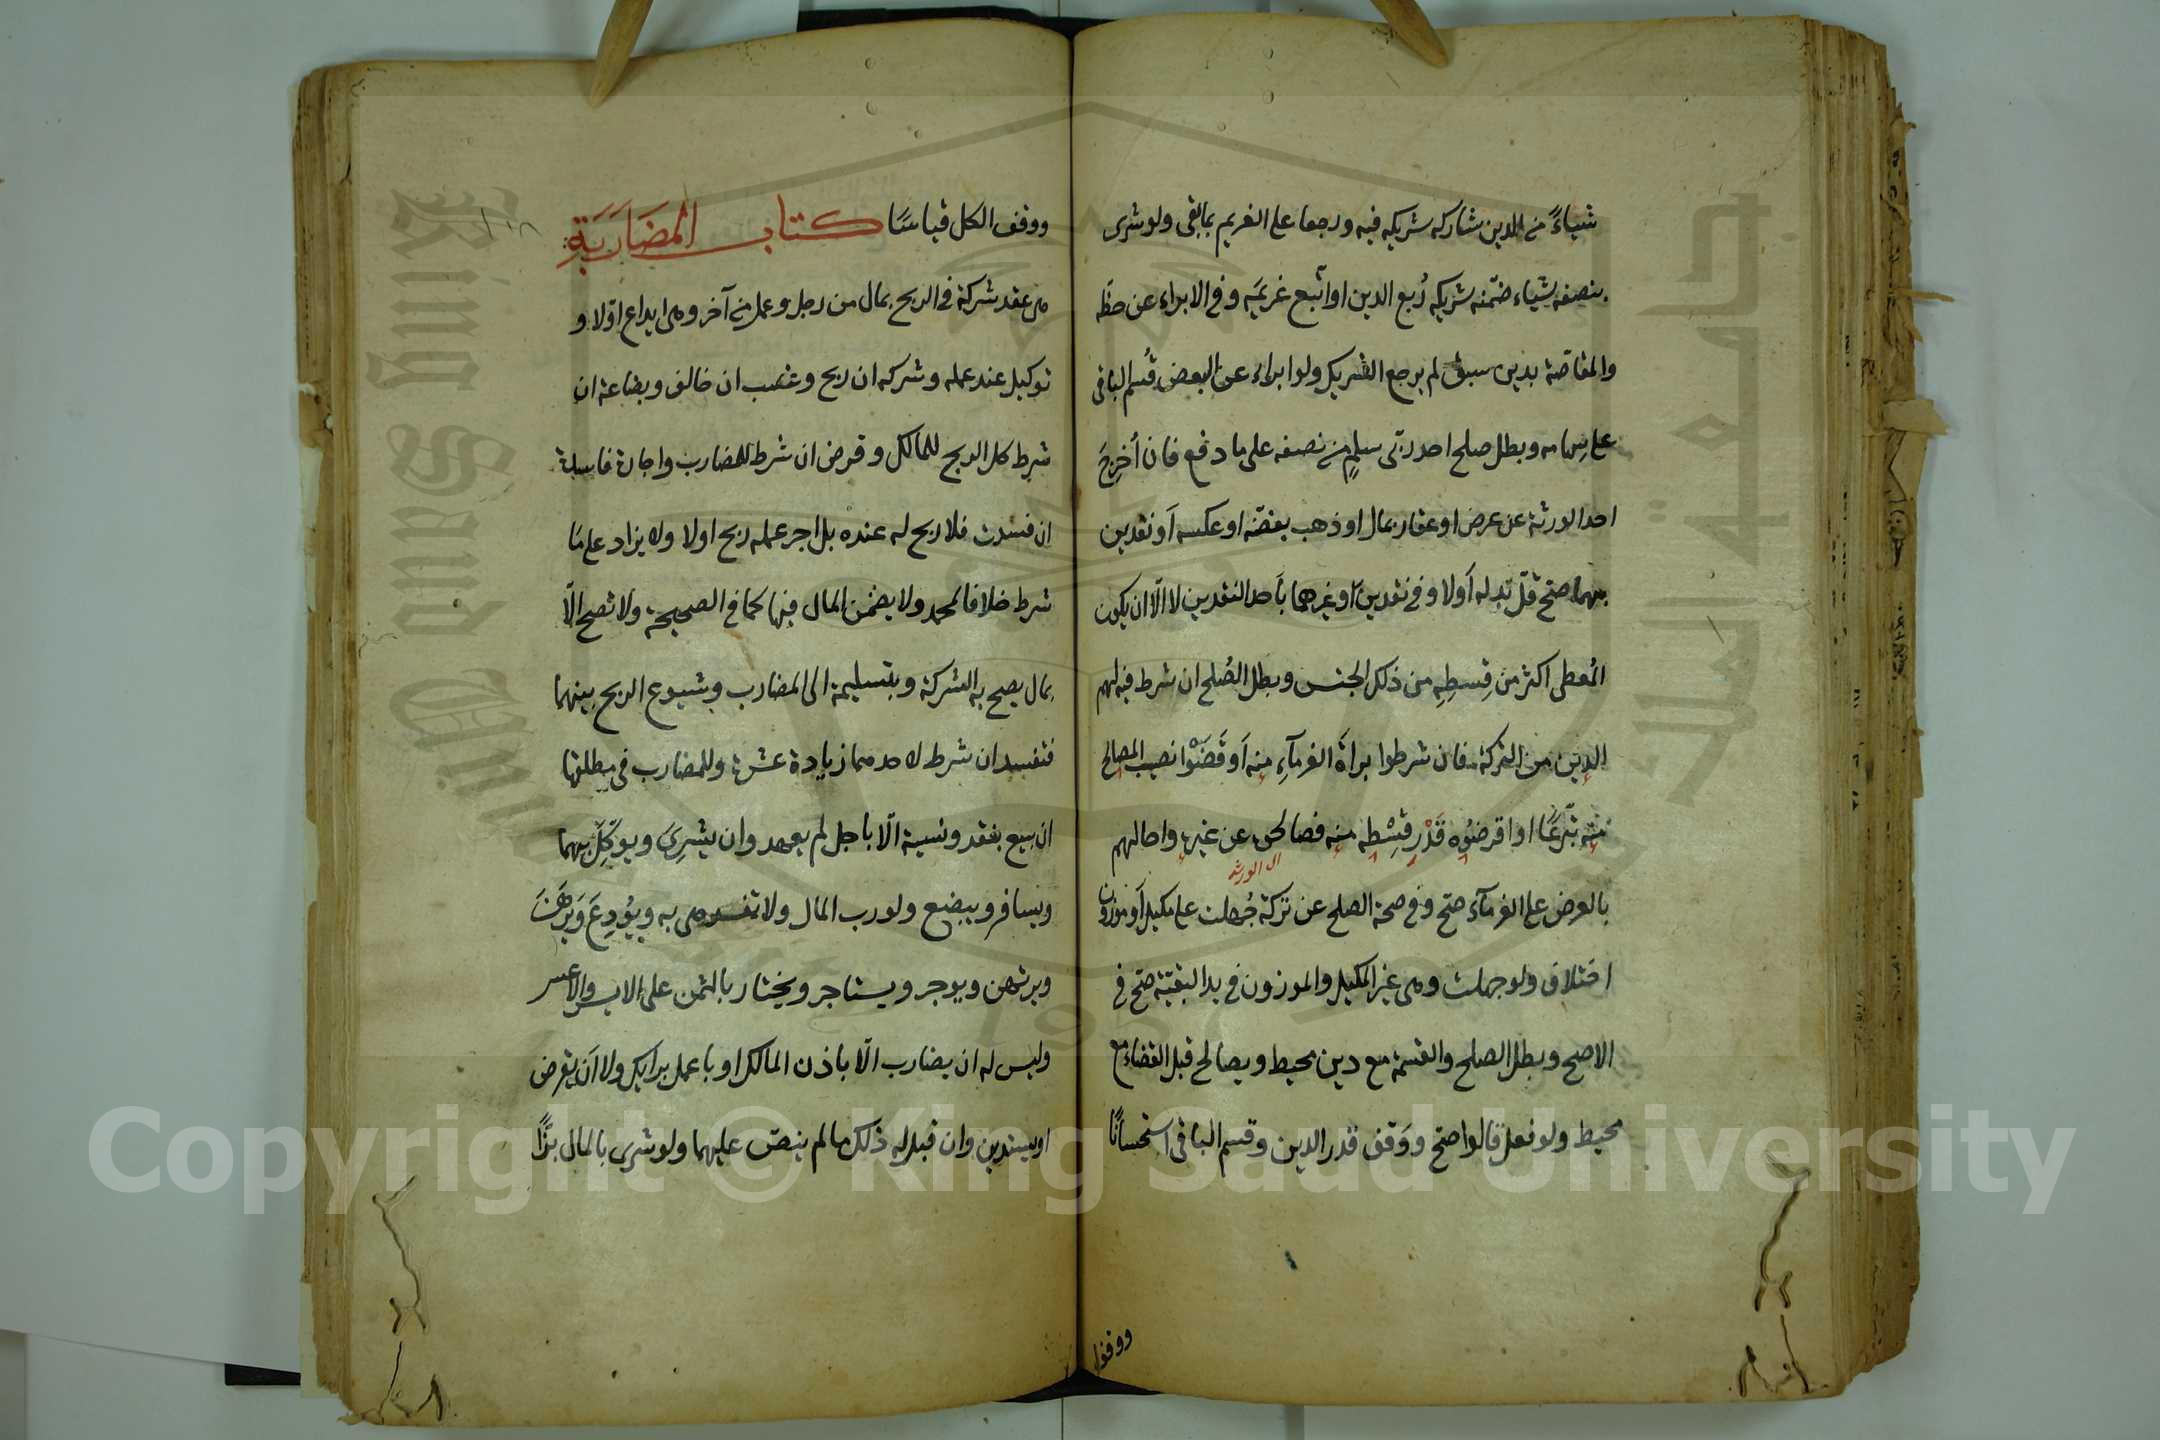 شياءً من الدين شاركه شريكه فيه ورجعا على الغريم بما بقى ولو شرى
بنصفه شياء ضمّنه شريكه رُبع الدين او اتّبع غريمَه وفى الابراء عن حظّه
والمقاصّة بدين سبق لم يرجع الشريك ولو ابراء عن البعض قُسم الباقى
على سِهامه وبطل صلح احد ربّى سلمٍ من نصفه على ما دفع فان اُخرِجَ
احد الورثة عن عرض او عقار بمال او ذهب بفضّة او عكسه اَو نقدين
بهما صحّ قلّ بدله اَولا وفى نقدين او غيرهما بأحد النقدين لا الّا ان يكون
المُعطى اكثر من قِسطِهِ من ذلك الجنس وبطل الصُلح ان شرط فيه لهم
الدين من التركة فان شرطوا براَة الغرمآءِ منه اَو قَضَوْا نصيب المصالح
منه تبرّعًا او اقرضوُه قَدْر قِسْطِه منه فصالحَ عن غيره واحالهم
ال الورثه
بالعرض على الغرمآء صحّ وفى صحة الصلح عن تركة جُهلت على مكيل اَو موزون
اختلاف ولو جهلت وهى غير المكيل والموزون فى يد البقيّة صحّ فى
الاصح وبطل الصلح والقسمة مع دين محيط ويصالح قبل القضاء مع
محيط ولو فعل قالوا صحّ ووَقف قدر الدين وقسم الباقى استحسانًا
ووقف
ووقف الكل قياسًا كتاب المُضَارَبَةِ
١٠٨
هى عقد شركة فى الربح بمال من رجل وعمل من آخر وهى ايداع اوّلا و
توكيل عند عمله وشركه ان ربح وغصب ان خالف وبضاعة ان
شرط كل الربح للمالك وقرض ان شرط للمضارب واجارة فاسدة
ان فسدت فلا ربح له عنده بل اجر عمله ربح اولا ولا يزاد على مَا
شرط خلافا لمحمد ولا يضمن المال فيها كما فى الصحيحة ولا تصح الّا
بمال يصح به الشركة وبتسليمه الى المضارب وشيوع الربح بينهما
فتفسد ان شرط لاحدهما زيادة عشرة وللمضارب فى مطلقها
ان يبيع بنقد ونسية الّا باجل لم يعهد وان يشرِىَ ويوكِّل بهما
ويسافر ويبضع ولو رب المال ولا تفسد هى به ويُودِعَ وَيَرْهَنَ
ويرتهن ويوجر ويستاجر ويحتار بالثمن على الايسر والاعسر
وليس له ان يضارب الّا باذن المالك او باعمل برايك ولا اَن يقرض
او يستدين وان قيل له ذلك ما لم ينصّ عليهما ولو شرى بالمال بزًّا
Copyright © King Saud University
King Saud University
جامعة الملك سعود
1957